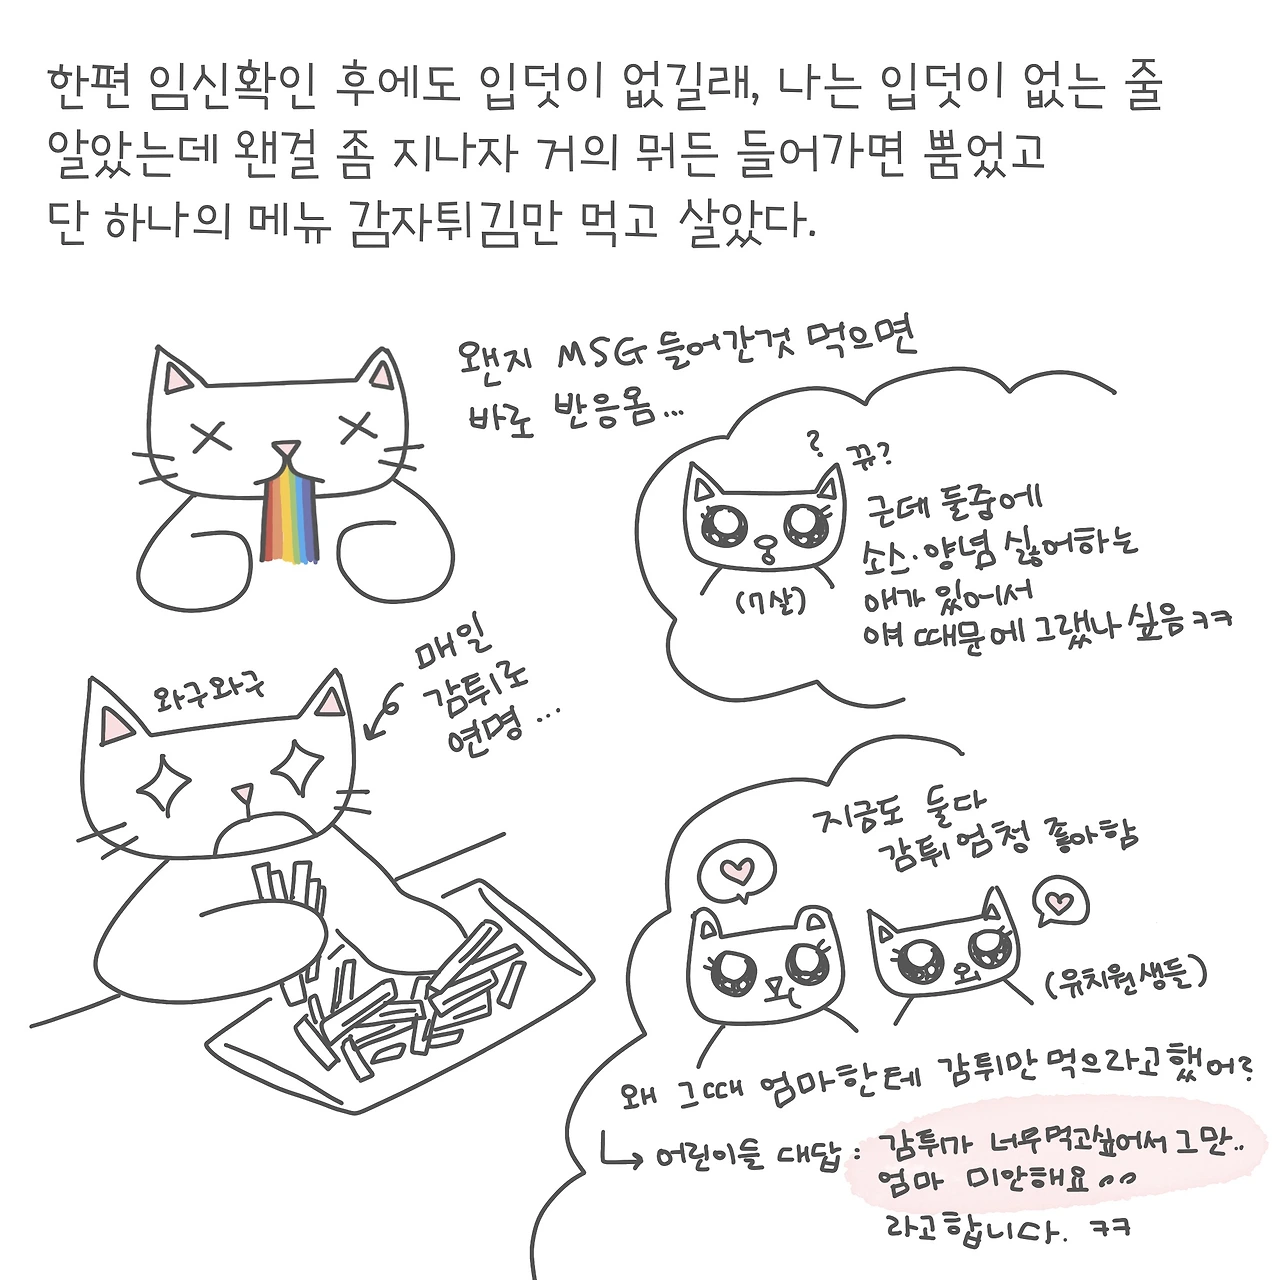 한편 임신확인 후에도 입덧이 없길래, 나는 입덧이 없는 줄
알았는데 왠걸 좀 지나자 거의 뭐든 들어가면 뿜었고
단 하나의 메뉴 감자튀김만 먹고 살았다.
왠지 MSG 들어간것 먹으면
바로 반응옴...
?
뀨?
(7살)
근데 둘중에
소스·양념 싫어하는
애가 있어서
얘 때문에 그랬나 싶음ㅋㅋ
와구와구
매일
감튀로
연명...
지금도 둘다
감튀 엄청 좋아함
(유치원생들)
왜 그때 엄마한테 감튀만 먹으라고 했어?
어린이들 대답 : 감튀가 너무먹고싶어서 그만..
엄마 미안해요
라고합니다. ㅋㅋ